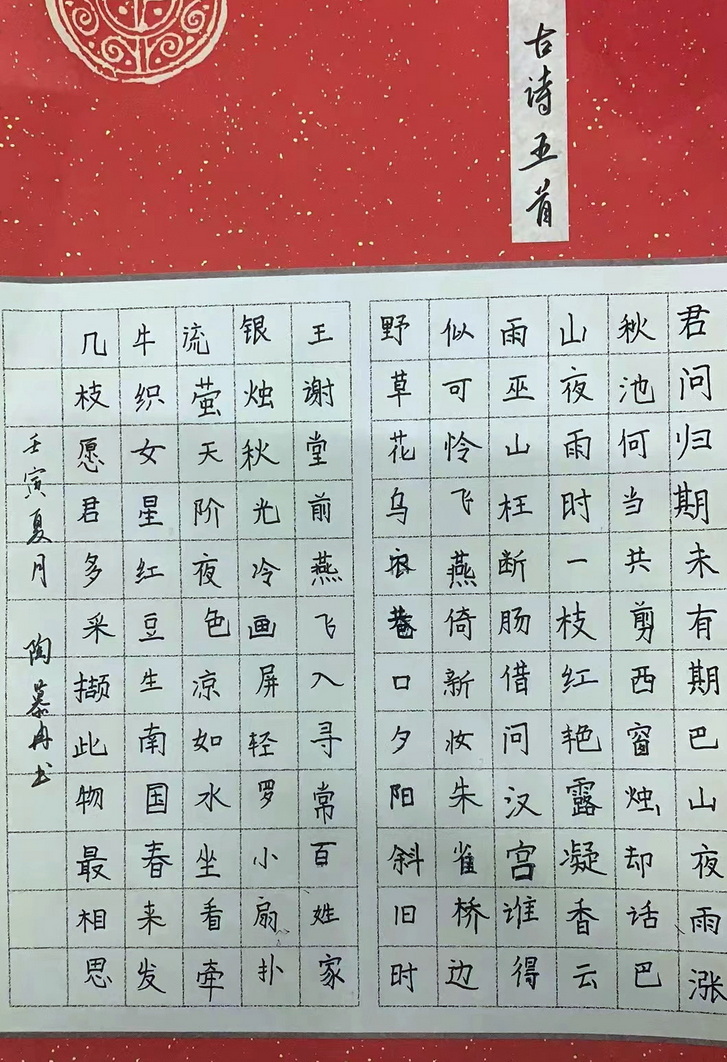 古诗五首
君问归期未有期巴山夜雨涨
秋池何当共剪西窗烛却话巴
山夜雨时一枝红艳露凝香云
雨巫山枉断肠借问汉宫谁得
似可怜飞燕倚新妆朱雀桥边
野草花乌衣巷口夕阳斜旧时
王谢堂前燕飞入寻常百姓家
银烛秋光冷画屏轻罗小扇扑
流萤天阶夜色凉如水坐看牵
牛织女星红豆生南国春来发
几枝愿君多采撷此物最相思
壬寅夏月 陶慕冉书